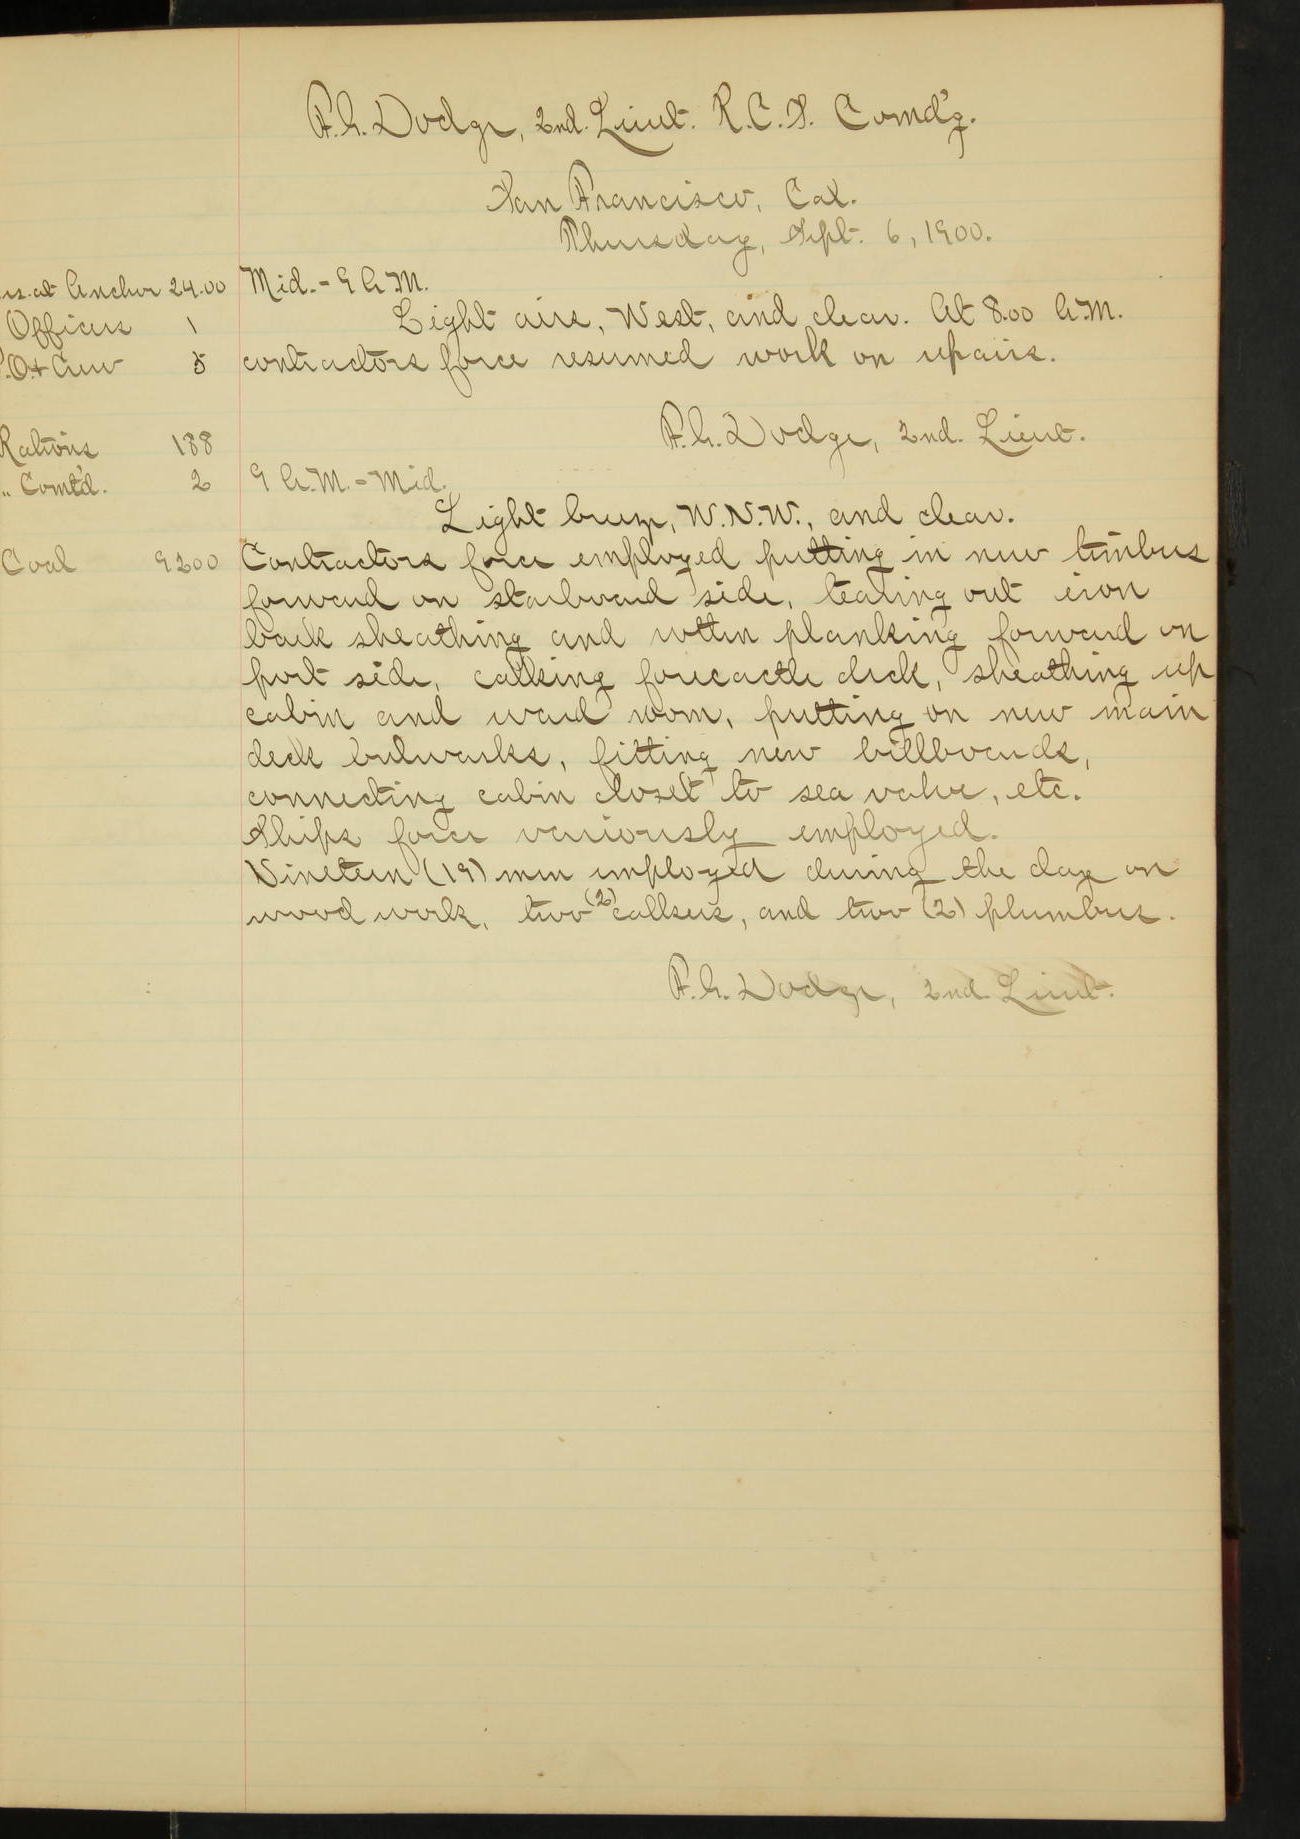 F.G. Dodge, 2nd. Lieut. R.C.S. Comd'g.
San Francisco, Cal.
Thursday, Sept. 6, 1900.
rs. at Anchor 24.00 Mid. - 9 A.M.
Officers 1 Light airs, West, and clear. At 8.00 A.M.
P.O. & Crew 5 contractors force resumed work on repairs.
F.G. Dodge, 2nd. Lieut.
Rations 188
" Comt'd. 2 9 A.M. - Mid.
Light breeze, W.N.W., and clear.
Coal 9200 Contractors force employed putting in new timbers
forward on starboard side, tearing out iron
bark sheathing and rotten planking forward on
port side, calking forecastle deck, sheathing up
cabin and ward room, putting on new main
deck bulwarks, fitting new billboards,
connecting cabin closet to sea valve, etc.
Ships force variously employed.
Nineteen (19) men employed during the day on
wood work, two (2) calkers, and two (2) plumbers.
F.G. Dodge, 2nd. Lieut.